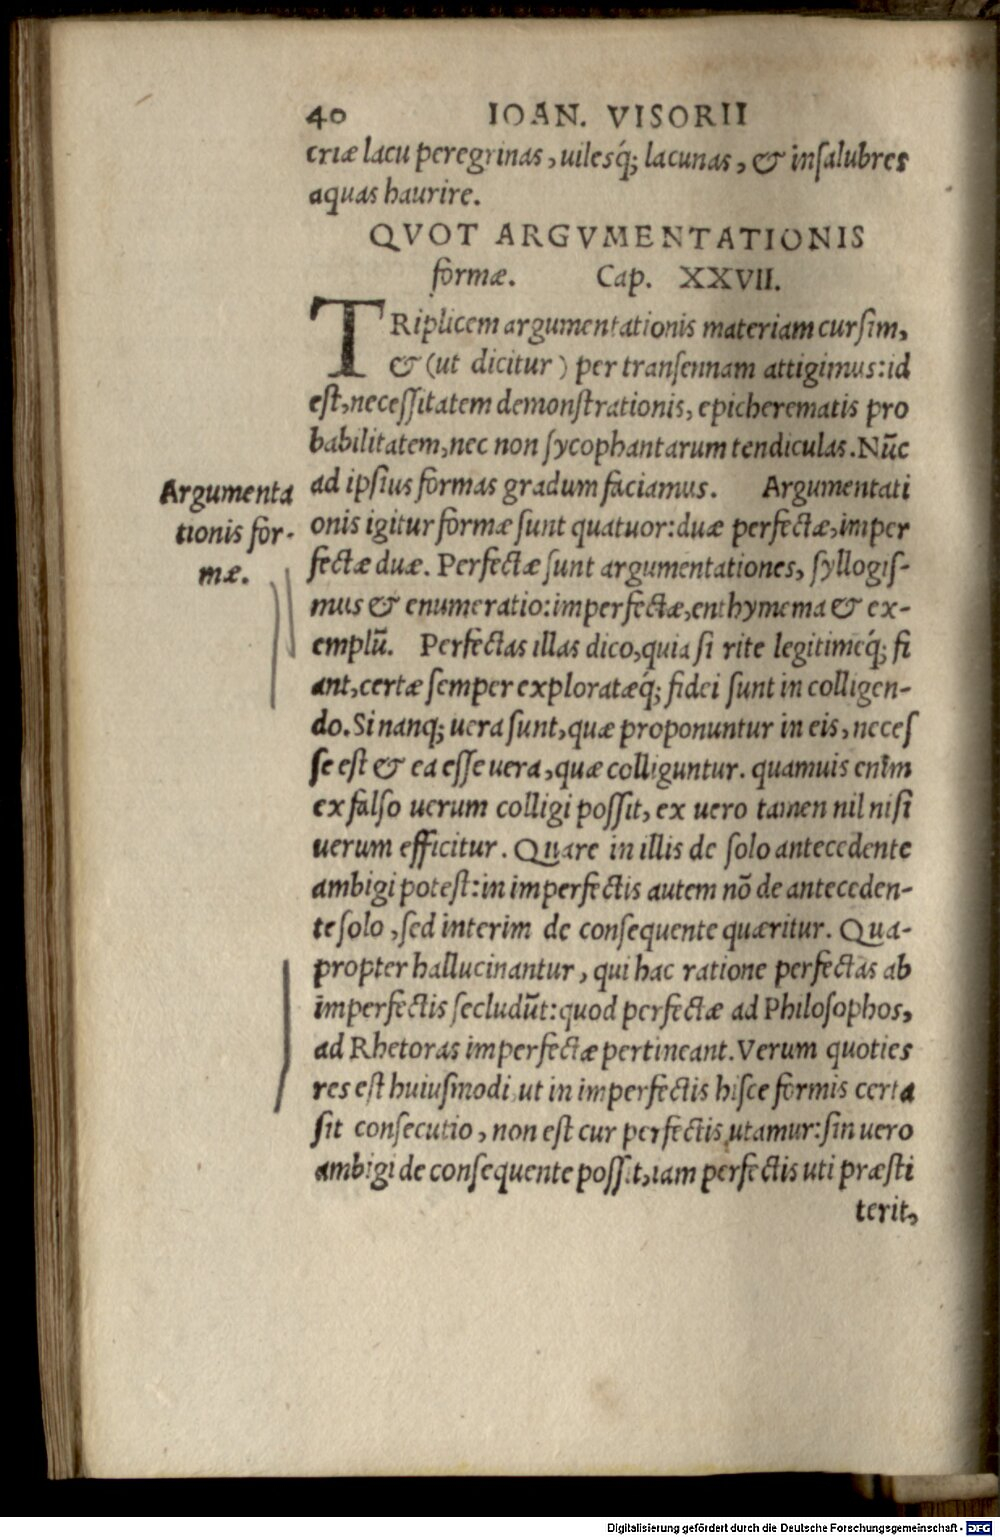 40 IOAN. VISORII
criæ lacu peregrinas, uilesq́; lacunas, & inſalubres
aquas haurire.
QVOT ARGVMENTATIONIS
formæ. Cap. XXVII.
TRiplicem argumentationis materiam curſim,
& (ut dicitur) per tranſennam attigimus: id
eſt, neceſſitatem demonſtrationis, epicherematis pro
babilitatem, nec non ſycophantarum tendiculas. Nūc
ad ipſius formas gradum faciamus. Argumentati
onis igitur formæ ſunt quatuor: duæ perfectæ, imper
fectæ duæ. Perfectæ ſunt argumentationes, ſyllogiſ-
mus & enumeratio: imperfectæ, enthymema & ex-
emplū. Perfectas illas dico, quia ſi rite legitimeq́; fi
ant, certæ ſemper explorataeq́; fidei ſunt in colligen-
do. Si nanq; uera ſunt, quæ proponuntur in eis, neceſ
ſe eſt & ea eſſe uera, quæ colliguntur. quamuis enim
ex falſo uerum colligi poſſit, ex uero tamen nil niſi
uerum efficitur. Quare in illis de ſolo antecedente
ambigi poteſt: in imperfectis autem nō de anteceden-
te ſolo, ſed interim de conſequente quæritur. Qua-
propter hallucinantur, qui hac ratione perfectas ab
imperfectis ſecludūt: quod perfectæ ad Philoſophos,
ad Rhetoras imperfectæ pertineant. Verum quoties
res eſt huiuſmodi, ut in imperfectis hiſce formis certa
ſit conſecutio, non eſt cur perfectis utamur: ſin uero
ambigi de conſequente poſſit, iam perfectis uti præſti
terit,
Argumenta
tionis for-
mæ.
Digitalisierung gefördert durch die Deutsche Forschungsgemeinschaft - DFG